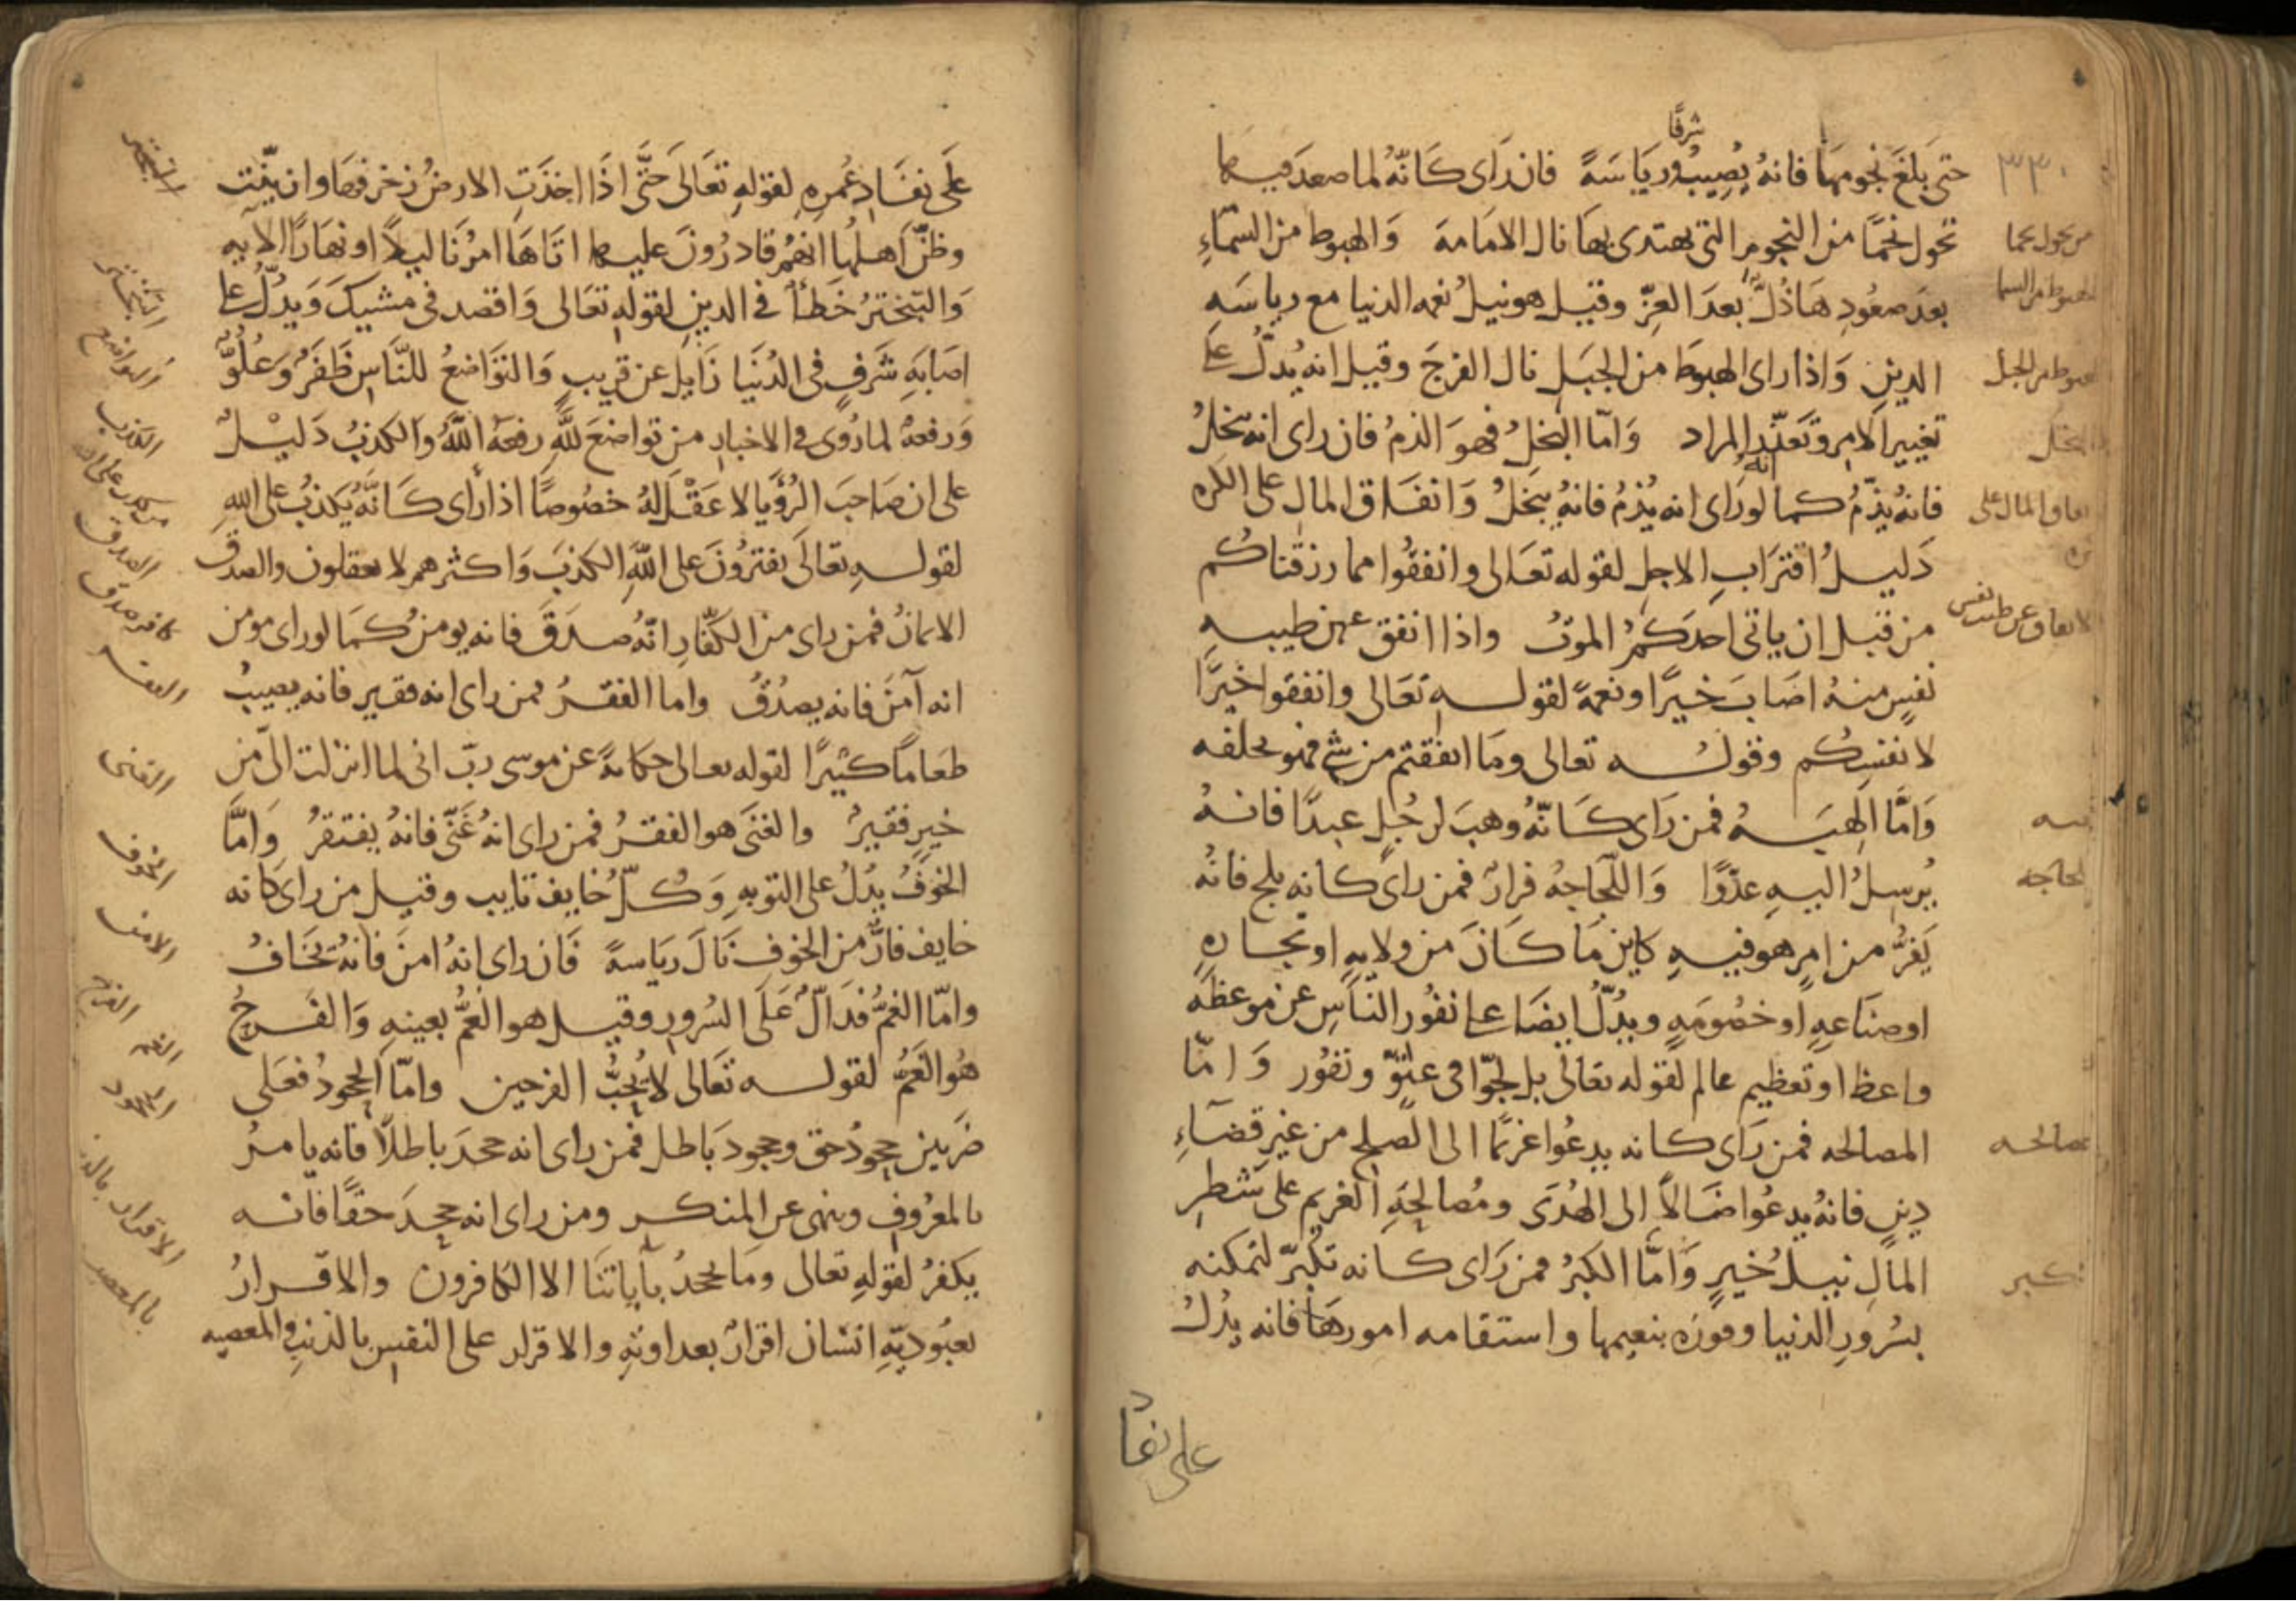 شرفًا
حتى بَلغَ نجومها فانهُ يُصِيبُ ورِيَاسَةً فان رَاى كَانّهُ لما صعدَ فيها
٣٣٠
تحول نجمًا من النجوم التى يهتدى بهَا نال الامَامة وَالهبوط من السمّاءِ
من تحول نجما
بعدَ صعُودِ هَا ذُلٌّ بعدَ العِزّ وقيل هو نيلُ نعمه الدنيا مع رياسَهِ
الهبوط من السما
الدينِ وَاذا راى الهبوَط من الجَبَل نال الفرجَ وقيل انه يُدلُّ على
هبوط من الجبل
تغيير الامر وتعذّر المراد وَامّا البخلُ فهوَ الذمُ فان راى انه يبخلُ
البخل
فانهُ يُذَمُّ كما لو رَاى انه يُذمُ فانهُ يبخلُ وَانفَاق المال على الكره
انه
انفاق المال على
كره
دَليلُ اقترَابِ الاجلِ لقوله تعَالى وانفقُوا مما رزقناكُم
من قبل ان ياتى احدَكمُ الموتُ واذا انفق عن طيبهِ
الانفاق عن طيب نفس
نفسٍ منهُ اصَابَ خيرًا ونعمةً لقولهِ تعَالى وانفقوا خيرًا
لانفسِكُم وقولُه تعالى ومَا انفقتم من شئ فهو يخلفه
وَامَّا الهِبَهُ فمن رَاى كَانّهُ وهبَ لرجُلٍ عبدًا فانهُ
هبه
يُرسلُ اليهِ عدُوًا وَاللّجَاجهُ فرارٌ فمن راى كانه يلج فانهُ
لجاجه
يَفرُّ من امرٍ هو فيهِ كاين مَا كَانَ من ولايهٍ او تجارهٍ
او صنَاعهٍ او خصُومَهٍ ويدُلُّ ايضَا على نفُور النّاسِ عن موعظَه
واعظ او تعظيم عالم لقوله تعالى بل لجّوا فى عتُوّ ونفُور وَامّا
المصالحه فمن رَاى كانه يدعُوا غريمًا الى الصلح من غير قضَآءِ
مصالحه
دينٍ فانهُ يدعُوا ضَالاً الى الهُدَى ومُصالحَةِ الغريم على شَطرِ
المَالِ نيلُ خيرٍ وَامَّا الكبرُ فمن رَاى كانه تكبّر لتمكنه
تكبر
بسُرورِ الدنيا وفوزه بنعيمها واستقامه امورهَا فانه يدُلُ
على نفا
د
عَلَى نفَادِ عُمرِهِ لقولهِ تعَالى حَتَّى اذَا اخذَتِ الارضُ زخرفهَا وازينّت
وظنّ اهلهُا انهُم قادرُونَ عليها اتَاهَا امرُنَا ليلاً او نهَارًا الايه
وَالتبخترُ خَطأٌ فى الدينِ لقولهِ تعَالى وَاقصد فى مشيكَ وَيدُلُّ على
التبختر
اصَابَهِ شَرَفٍ فى الدُنيَا زَايل عن قريبٍ وَالتوَاضعُ للنّاسِ ظَفَرٌ وَعُلُوٌّ
التواضع
وَرفعهٌ لما رُوِىَ فى الاخبارِ من تواضعَ للَّهِ رفعَهُ اللَّهُ وَالكذبُ دَليلٌ
الكذب
على ان صَاحبَ الرُؤيا لا عَقلَ لهُ خصُوصًا اذا رَاى كَانَّهُ يَكذبُ على اللهِ
من كذب على الله
لقولهِ تعَالَى يفترُونَ على اللّهِ الكذبَ وَاكثرهمر لا يعقلون والصدقُ
الصدق
الايمانُ فمن راى من الكفّارِ انّهُ صدَقَ فانه يومنُ كمَا لو راى مومن
كافر صدق
انه آمنَ فانه يصدُقُ واما الفقرُ فمن راى انه فقير فانه يصيبُ
الفقر
طعَامًا كثيرًا لقوله تعالى حكايةً عن موسى ربّ انى لما انزلت الىّ من
خيرٍ فقيرٌ والغنَى هو الفقرُ فمن راى انهُ غَنىّ فانهُ يفتقرُ وَامَّا
الغنى
الخوفُ يدُلُ على التوبهِ وَكُلّ خايف تايب وقيل من راى كانه
الخوف
خايف فانَّ من الخوفِ نَالَ ريَاسةً فَان راى انهُ امنَ فانهُ يخَافُ
الامن
وامّا الغمُّ فدَالٌّ عَلَى السُرورِ وقيل هو الغَمُّ بعينهِ وَالفَرحُ
الغم الفرح
هُوَ الغَمُّ لقوله تعَالى لا يُحبُّ الفرحين وامّا الجحودُ فعَلى
الجحود
ضَربين جحودُ حق وجحود بَاطل فمن راى انه جحدَ باطلاً فانه يامرُ
بالمعرُوفِ وينهى عن المنكر ومن راى انه جحدَ حقًا فانه
يكفرُ لقولهِ تعالى ومَا يجحدُ بآياتنَا الا الكافرون والاقرارُ
الاقرار بالذنب
بعبُوديّةِ انسَان اقرارٌ بعداوتهِ والاقرار على النفس بالذنبِ والمعصيه